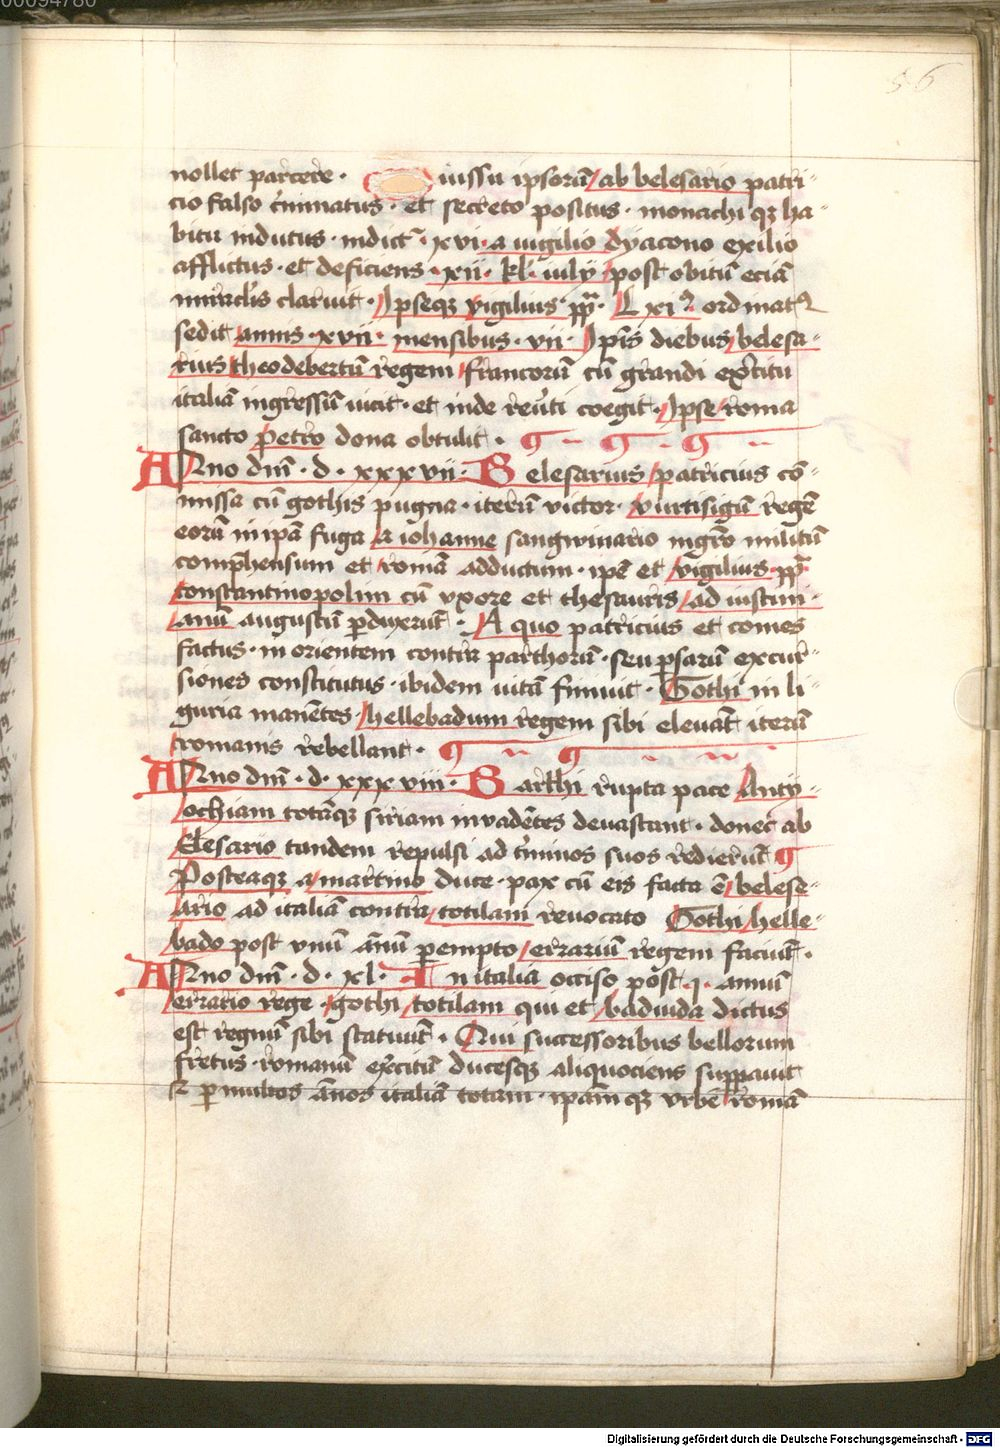 00094780
56
nollet parcere · iussu ipsorū ab belesario patri-
cio falso c̄minatus · et secreto positus · monachi qz ha-
bitu indutus · indict̄ · xvi · a uigilio dyacono exilio
afflictus · et deficiens · xii · kl̄ · iulij post obitū eciā
mirac̄lis claruit · Ipseqz vigilius · pp̄a · Lxiꝰ ordinatꝰ
sedit annis · xvii · mensibus · vii · Ip̄is diebus belesa-
rius theodebertū regem francorū cū grandi ex̄citu
italiā ingressū uicit · et inde reūti coegit · Ipse rome
sancto petro dona obtulit ·
Anno dn̄i · d · xxxvii · Belesarius patricius cō-
missa cū gothis pugna · iterū victor · vurtisigū regē
eorū in ip̄a fuga a iohanne sangwinario mgr̄o militū
comp̄hensum et romā adductum · ip̄e et vigilius pp̄a
constantinopolim cū vxore et thesauris ad iustini-
anū augustū ꝑduxerūt · A quo patricius et comes
factus · in orientem contra parthorū · seu ꝑsarū excur-
siones constitutus · ibidem uitā finiuit · Gothi in li-
guria manētes · hellebadum regem sibi eleuāt iterū
romanis rebellant ·
Anno dn̄i · d · xxxviii · Parthi rupta pace Anty-
ochiam totāqz siriam inuadētes deuastant · donec ab
Elesario tandem repulsi ad t̄minos suos redierūt
Posteaqz a martino duce · pax cū eis facta ē belese-
ario ad italiā contra totilam reuocato Gothi helle-
bado post vnū ānū ꝑempto errariū regem faciūt ·
Anno dn̄i · d · xl · In italia occiso post · 1 · annū
erratio rege · gothi totilam qui et baduida dictus
est regnū sibi statuūt · Qui successoribus bellorum
fretus · romanū ex̄citū ducesqz aliquociens suꝑauit
Et ꝑ multos ānos italiā totam · ipāmqz vrbē romā
Digitalisierung gefördert durch die Deutsche Forschungsgemeinschaft - DFG